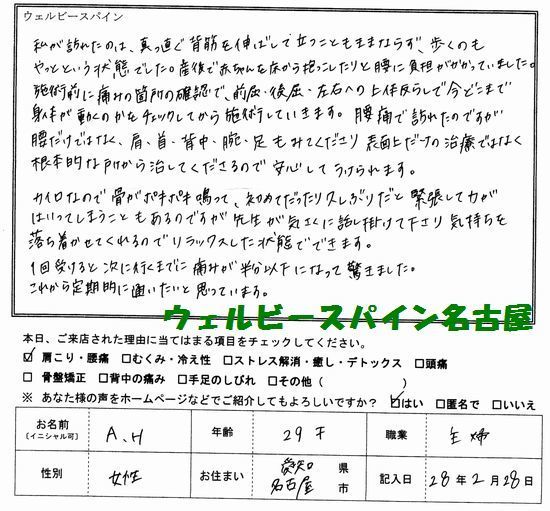 ウェルビースパイン
私が訪れたのは、真っ直ぐ背筋を伸ばして立つこともままならず、歩くのも
やっとという状態でした。産後で赤ちゃんを床から抱っこしたりと腰に負担がかかっていました。
施術前に痛みの箇所の確認で、前屈・後屈・左右への上体反らしで今どこまで
身体が動くのかをチェックしてから施術していきます。腰痛で訪れたのですが
腰だけではなく、肩、首、背中、腕、足もみてくださり表面上だけの治療ではなく
根本的な所から治してくださるので安心してうけられます。
カイロなので骨がポキポキ鳴って、初めてだったり久しぶりだと緊張して力が
はいってしまうこともあるのですが先生が気さくに話し掛けて下さり気持ちを
落ち着かせてくれるのでリラックスした状態でできます。
1回受けると次に行くまでに痛みが半分以下になって驚きました。
これから定期的に通いたいと思っています。
ウェルビースパイン名古屋
本日、ご来店された理由に当てはまる項目をチェックしてください。
☑肩こり・腰痛 □むくみ・冷え性 □ストレス解消・癒し・デトックス □頭痛
□骨盤矯正 □背中の痛み □手足のしびれ □その他( )
※ あなた様の声をホームページなどでご紹介してもよろしいですか? ☑はい □匿名で □いいえ
お名前 [イニシャル可] A.H 年齢 29才 職業 主婦
性別 女性 お住まい 愛知県 名古屋市 記入日 28年2月28日